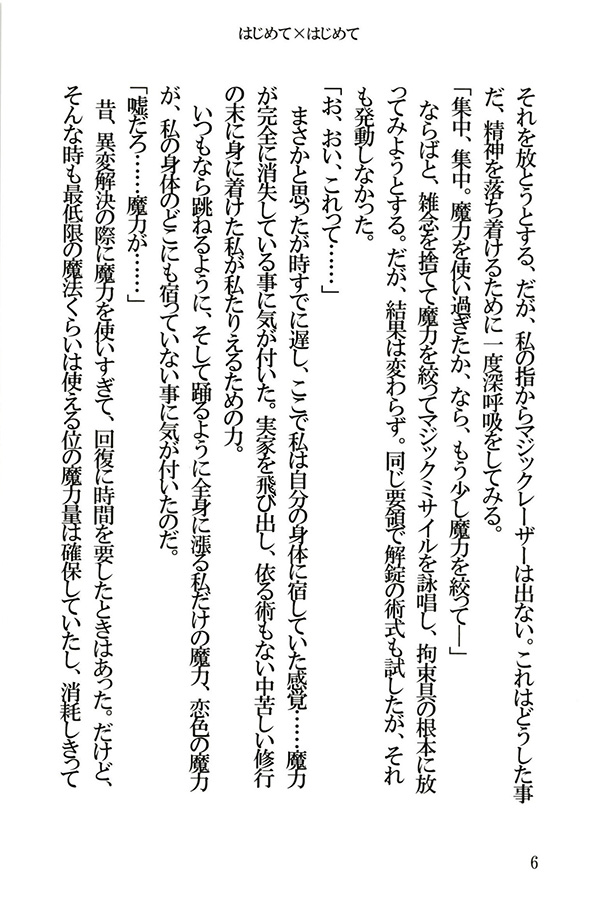 はじめて×はじめて
それを放とうとする、だが、私の指からマジックレーザーは出ない。これはどうした事
だ、精神を落ち着けるために一度深呼吸をしてみる。
「集中、集中。魔力を使い過ぎたか、なら、もう少し魔力を絞って―」
ならばと、雑念を捨てて魔力を絞ってマジックミサイルを詠唱し、拘束具の根本に放
ってみようとする。だが、結果は変わらず。同じ要領で解錠の術式も試したが、それ
も発動しなかった。
「お、おい、これって……」
まさかと思ったが時すでに遅し、ここで私は自分の身体に宿していた感覚……魔力
が完全に消失している事に気が付いた。実家を飛び出し、依る術もない中苦しい修行
の末に身に着けた私が私たりえるための力。
いつもなら跳ねるように、そして踊るように全身に漲る私だけの魔力、恋色の魔力
が、私の身体のどこにも宿っていない事に気が付いたのだ。
「嘘だろ……魔力が……」
昔、異変解決の際に魔力を使いすぎて、回復に時間を要したときはあった。だけど、
そんな時も最低限の魔法くらいは使える位の魔力量は確保していたし、消耗しきって
6